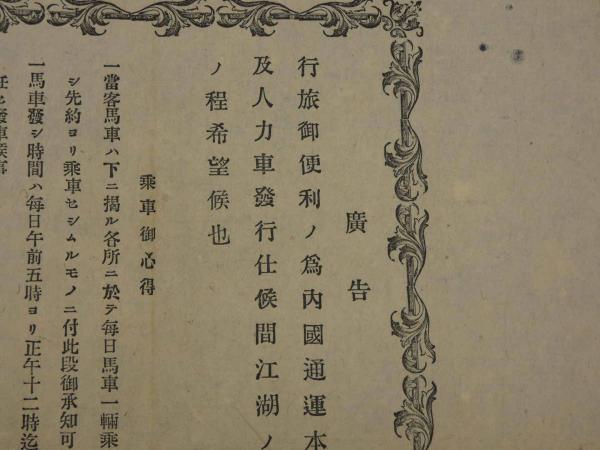 廣告
行旅御便利ノ爲內國通運本
及人力車發行仕候間江湖ノ
ノ程希望候也
乘車御心得
一當客馬車ハ下ニ揭ル各所ニ於テ每日馬車一輛乘
シ先約ヨリ乘車セシムルモノニ付此段御承知可
一馬車發シ時間ハ每日午前五時ヨリ正午十二時迄